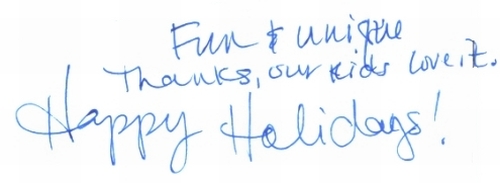 Fun & unique
Thanks, our kids love it.
Happy Holidays!